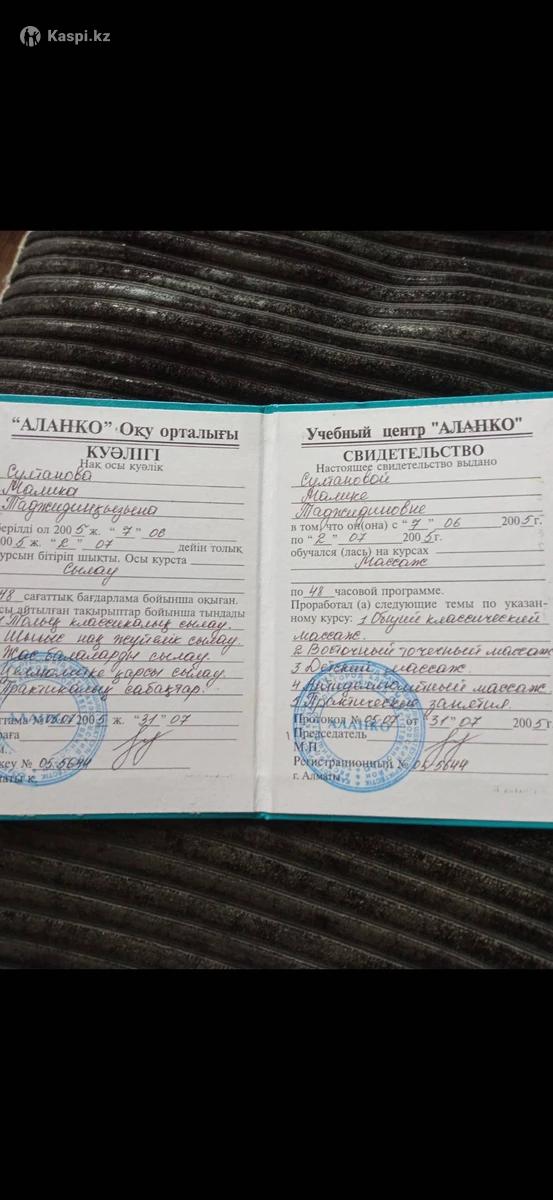 Kaspi.kz
"АЛАНКО" Оқу орталығы
КУӘЛІГІ
Нақ осы куәлік
Султанова
Малика
Таджидинқызына
берілді ол 2005 ж. "7" 06
2005 ж. "2" 07 дейін толық
курсын бітіріп шықты. Осы курста
Сылау
48 сағаттық бағдарлама бойынша оқыған.
осы айтылған тақырыптар бойынша тындады
1 Толық классикалық сылау.
Шығыс нақ жүйелік сылау.
Жас балаларды сылау.
қарсы сылау.
Практикалық сабақтар.
№ 05.07 2005 ж. "31" 07
№ 05.5644
Алматы қ.
Учебный центр "АЛАНКО"
СВИДЕТЕЛЬСТВО
Настоящее свидетельство выдано
Султановой
Малике
Таджидиновне
в том, что он(она) с "7" 06 2005г.
по "2" 07 2005г.
обучался (лась) на курсах
Массаж
по 48 часовой программе.
Проработал (а) следующие темы по указан-
ному курсу: 1 Общий классический
массаж.
2 Восточный точечный массаж
3 Детский массаж.
4 Антицеллюлитный массаж.
5 Практические занятия.
Протокол № 05.07 от "31" 07 2005г
Председатель
М.П
Регистрационный № 05.5644
г. Алматы
АЛАНКО